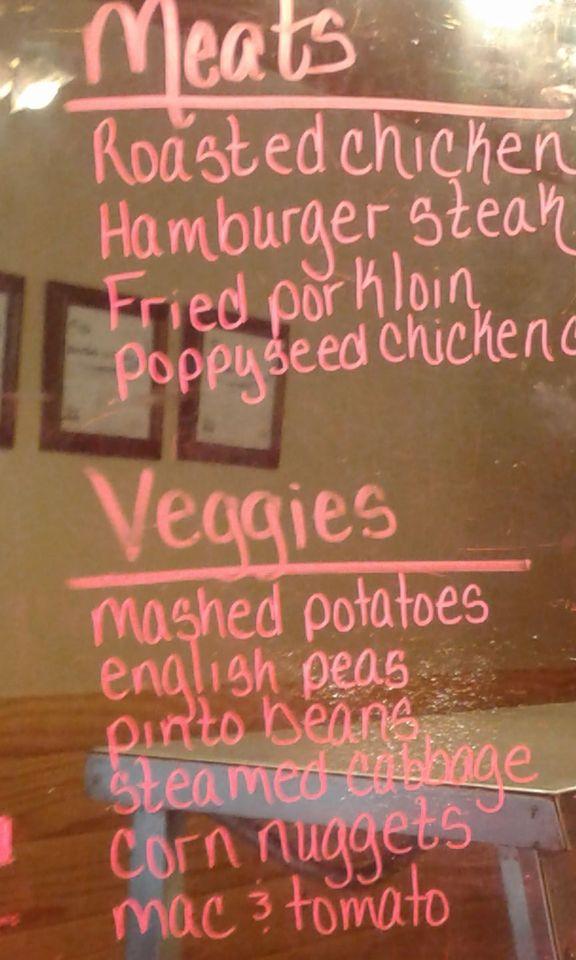 Meats
Roasted chicken
Hamburger steak
Fried porkloin
poppyseed chicken c
Veggies
mashed potatoes
english peas
pinto beans
steamed cabbage
corn nuggets
mac & tomato